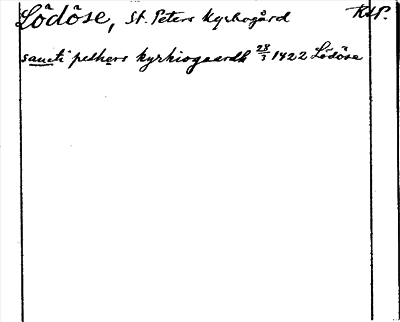 Lödöse, St. Peters Kyrkogård
sancti pethers kyrkiogaardh 28/3 1422 Lödöse